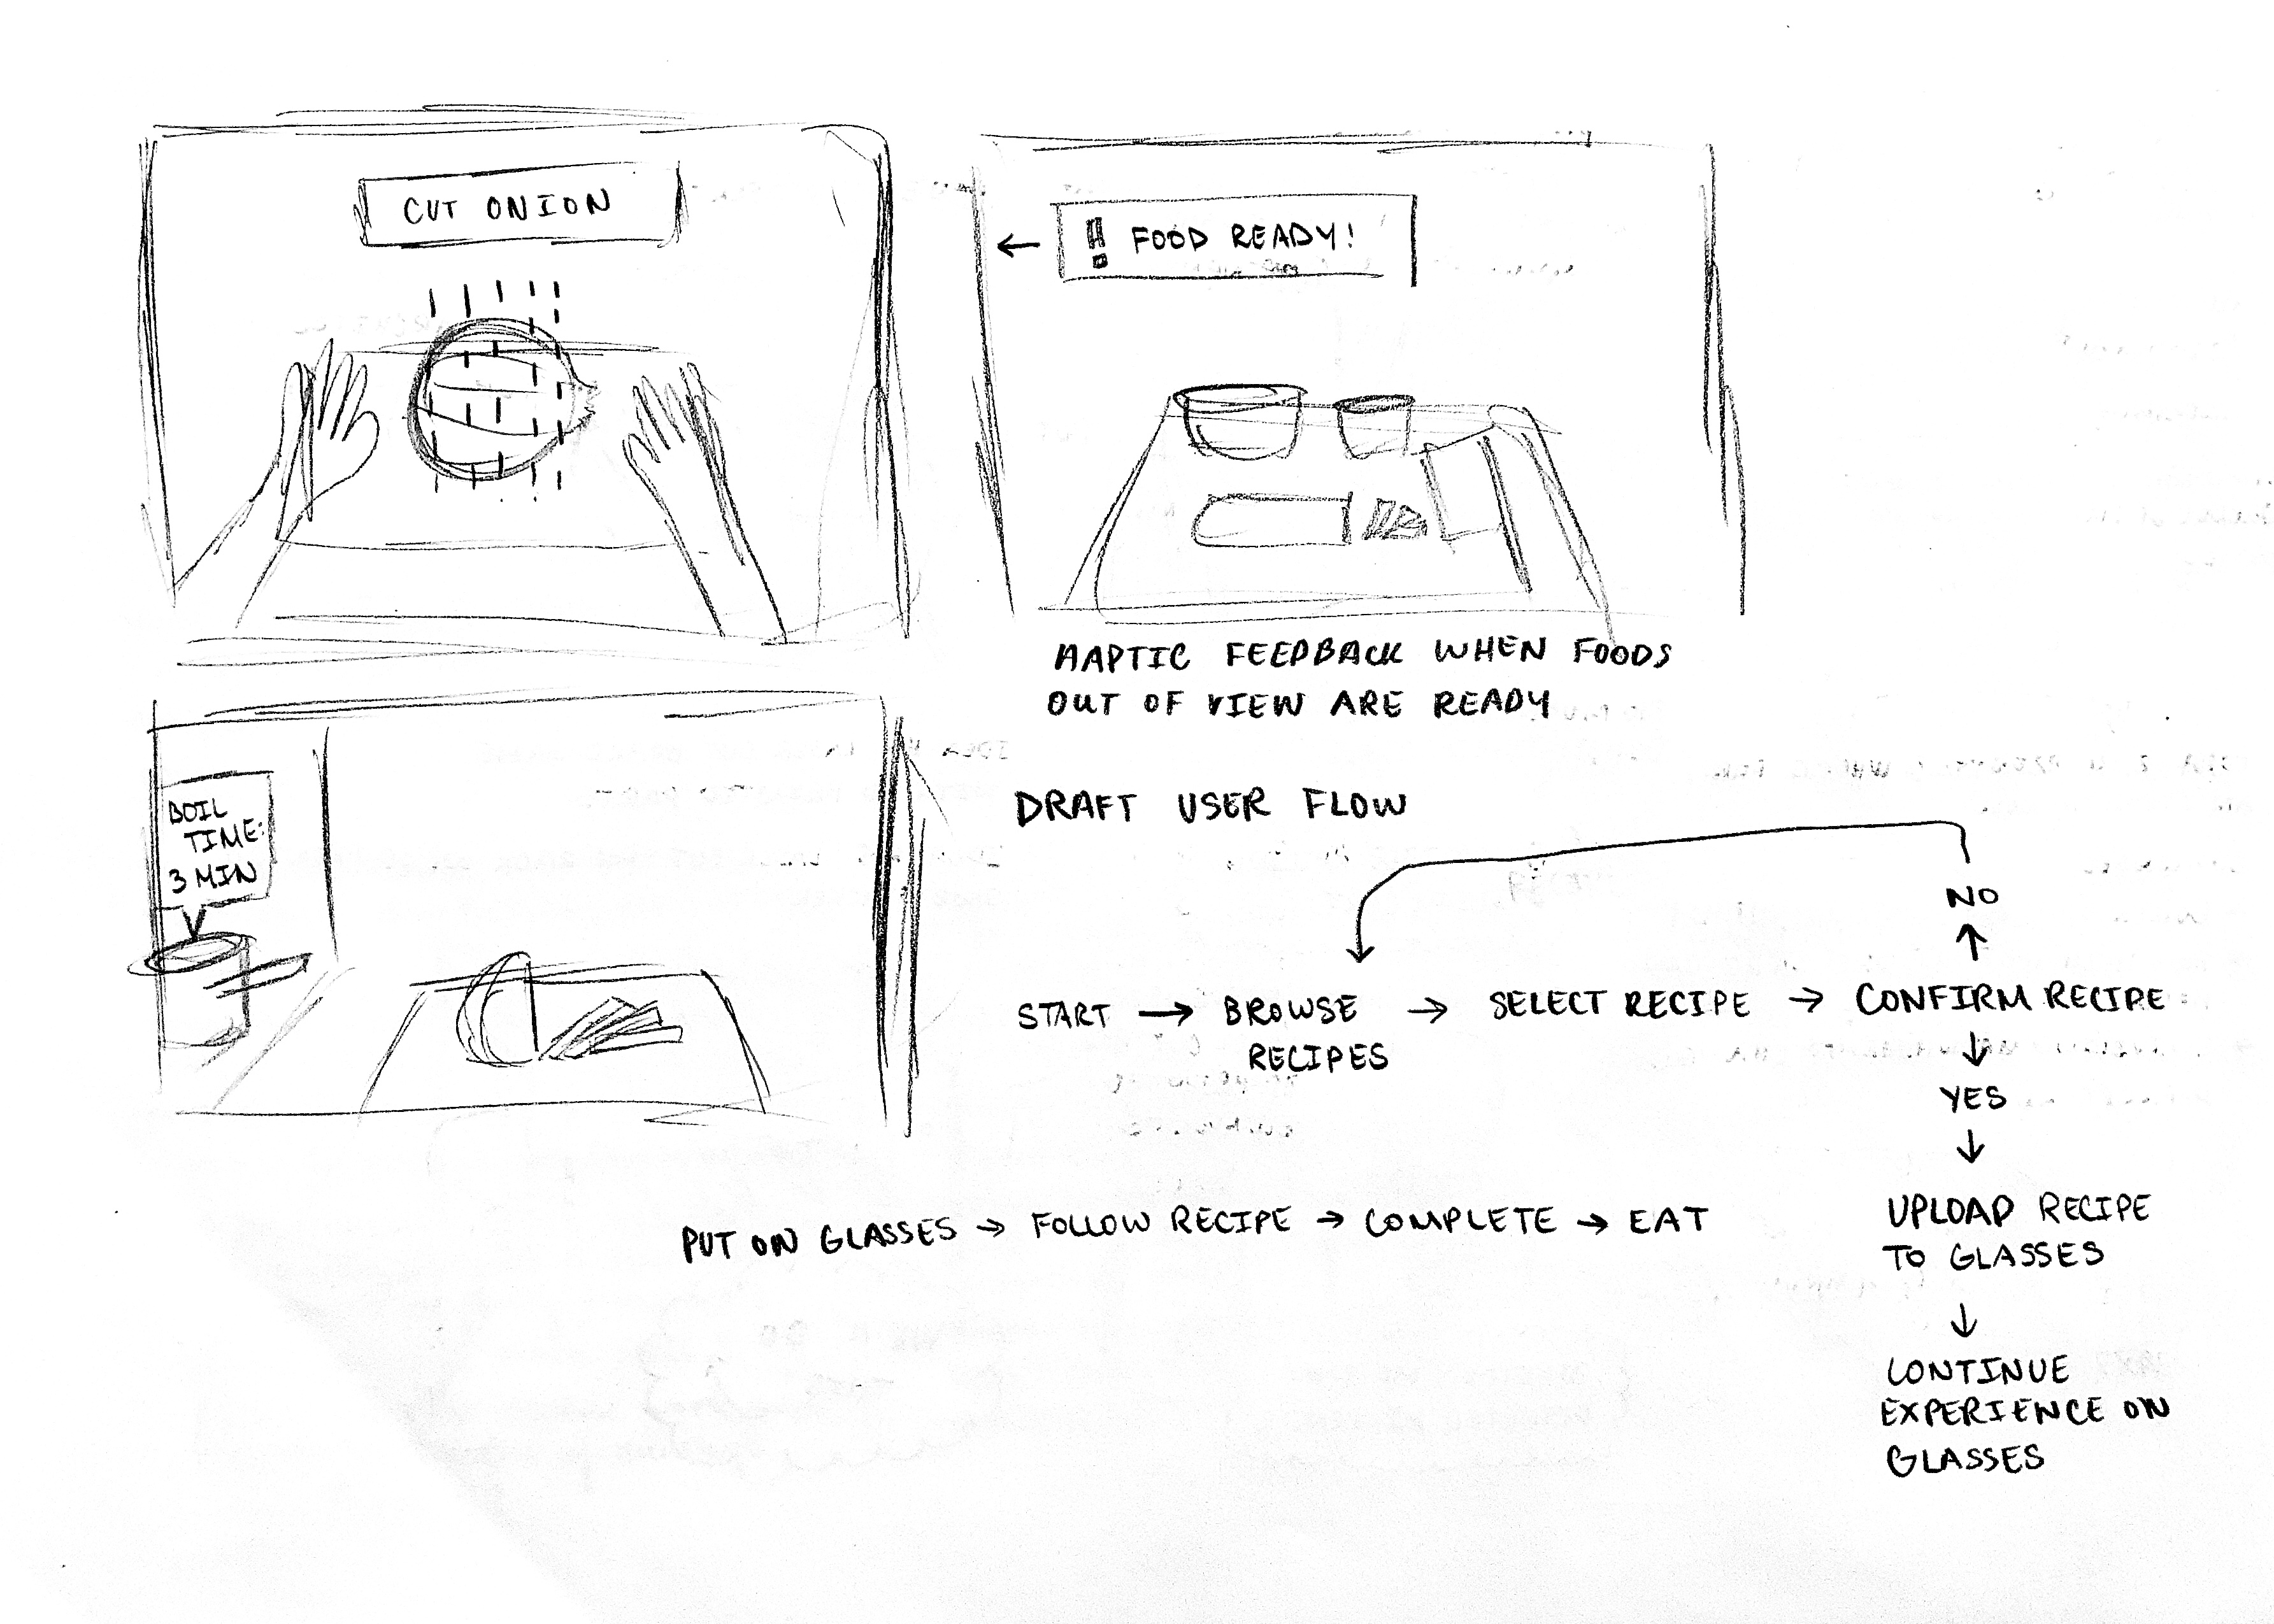 CUT ONION
← !! FOOD READY!
HAPTIC FEEDBACK WHEN FOODS
OUT OF VIEW ARE READY
BOIL
TIME:
3 MIN
DRAFT USER FLOW
NO
↑
START → BROWSE
RECIPES
→ SELECT RECIPE → CONFIRM RECIPE
↓
YES
↓
UPLOAD RECIPE
TO GLASSES
↓
CONTINUE
EXPERIENCE ON
GLASSES
PUT ON GLASSES → FOLLOW RECIPE → COMPLETE → EAT